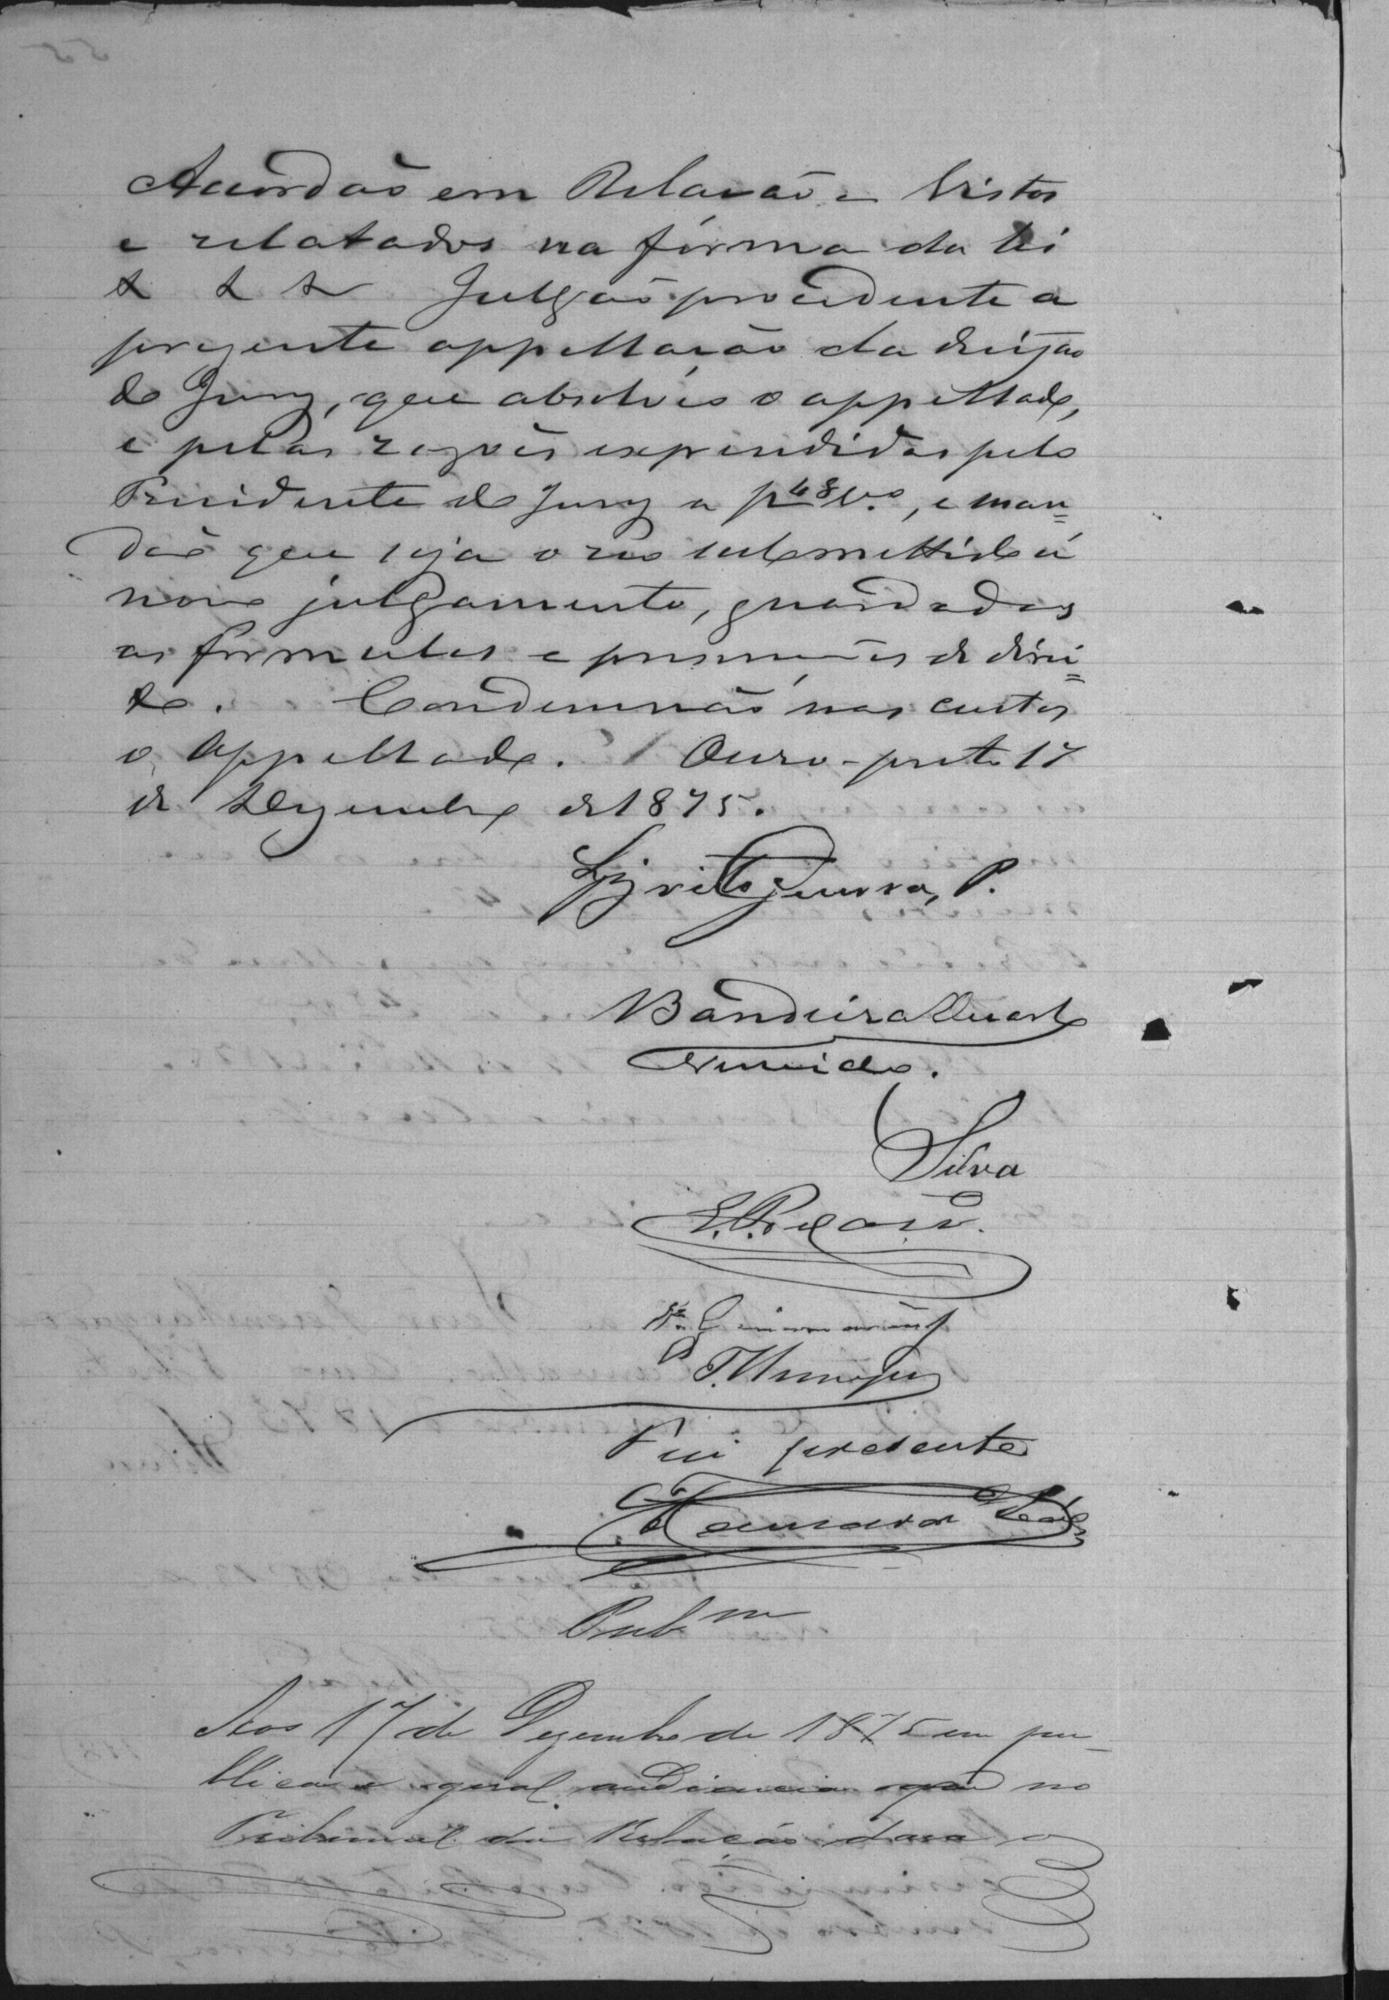 Acordão em Relação e Vistos
e relatados na fórma da lei
& & & Julgão procedente a
prezente appellação da decizão
do Jury, que absolveo o appellado,
e pelas rezões expendidas pelo
Presidente do Jury a p 48 vo., e man=
dão que seja o reo submettido á
novo julgamento, guardadas
as formulas e prescripções de direi=
to. Condemnão nas custas
o Appellado. Ouro-preto 17
de Dezembro de 1875.
Brito Guerra, P.
Bandeira Duarte
vencido.
Silva
Fui presente
Pub.m
Aos 17 de Dezembro de 1875 em pu-
blica e geral audiencia que no
Tribunal da Relação dava o